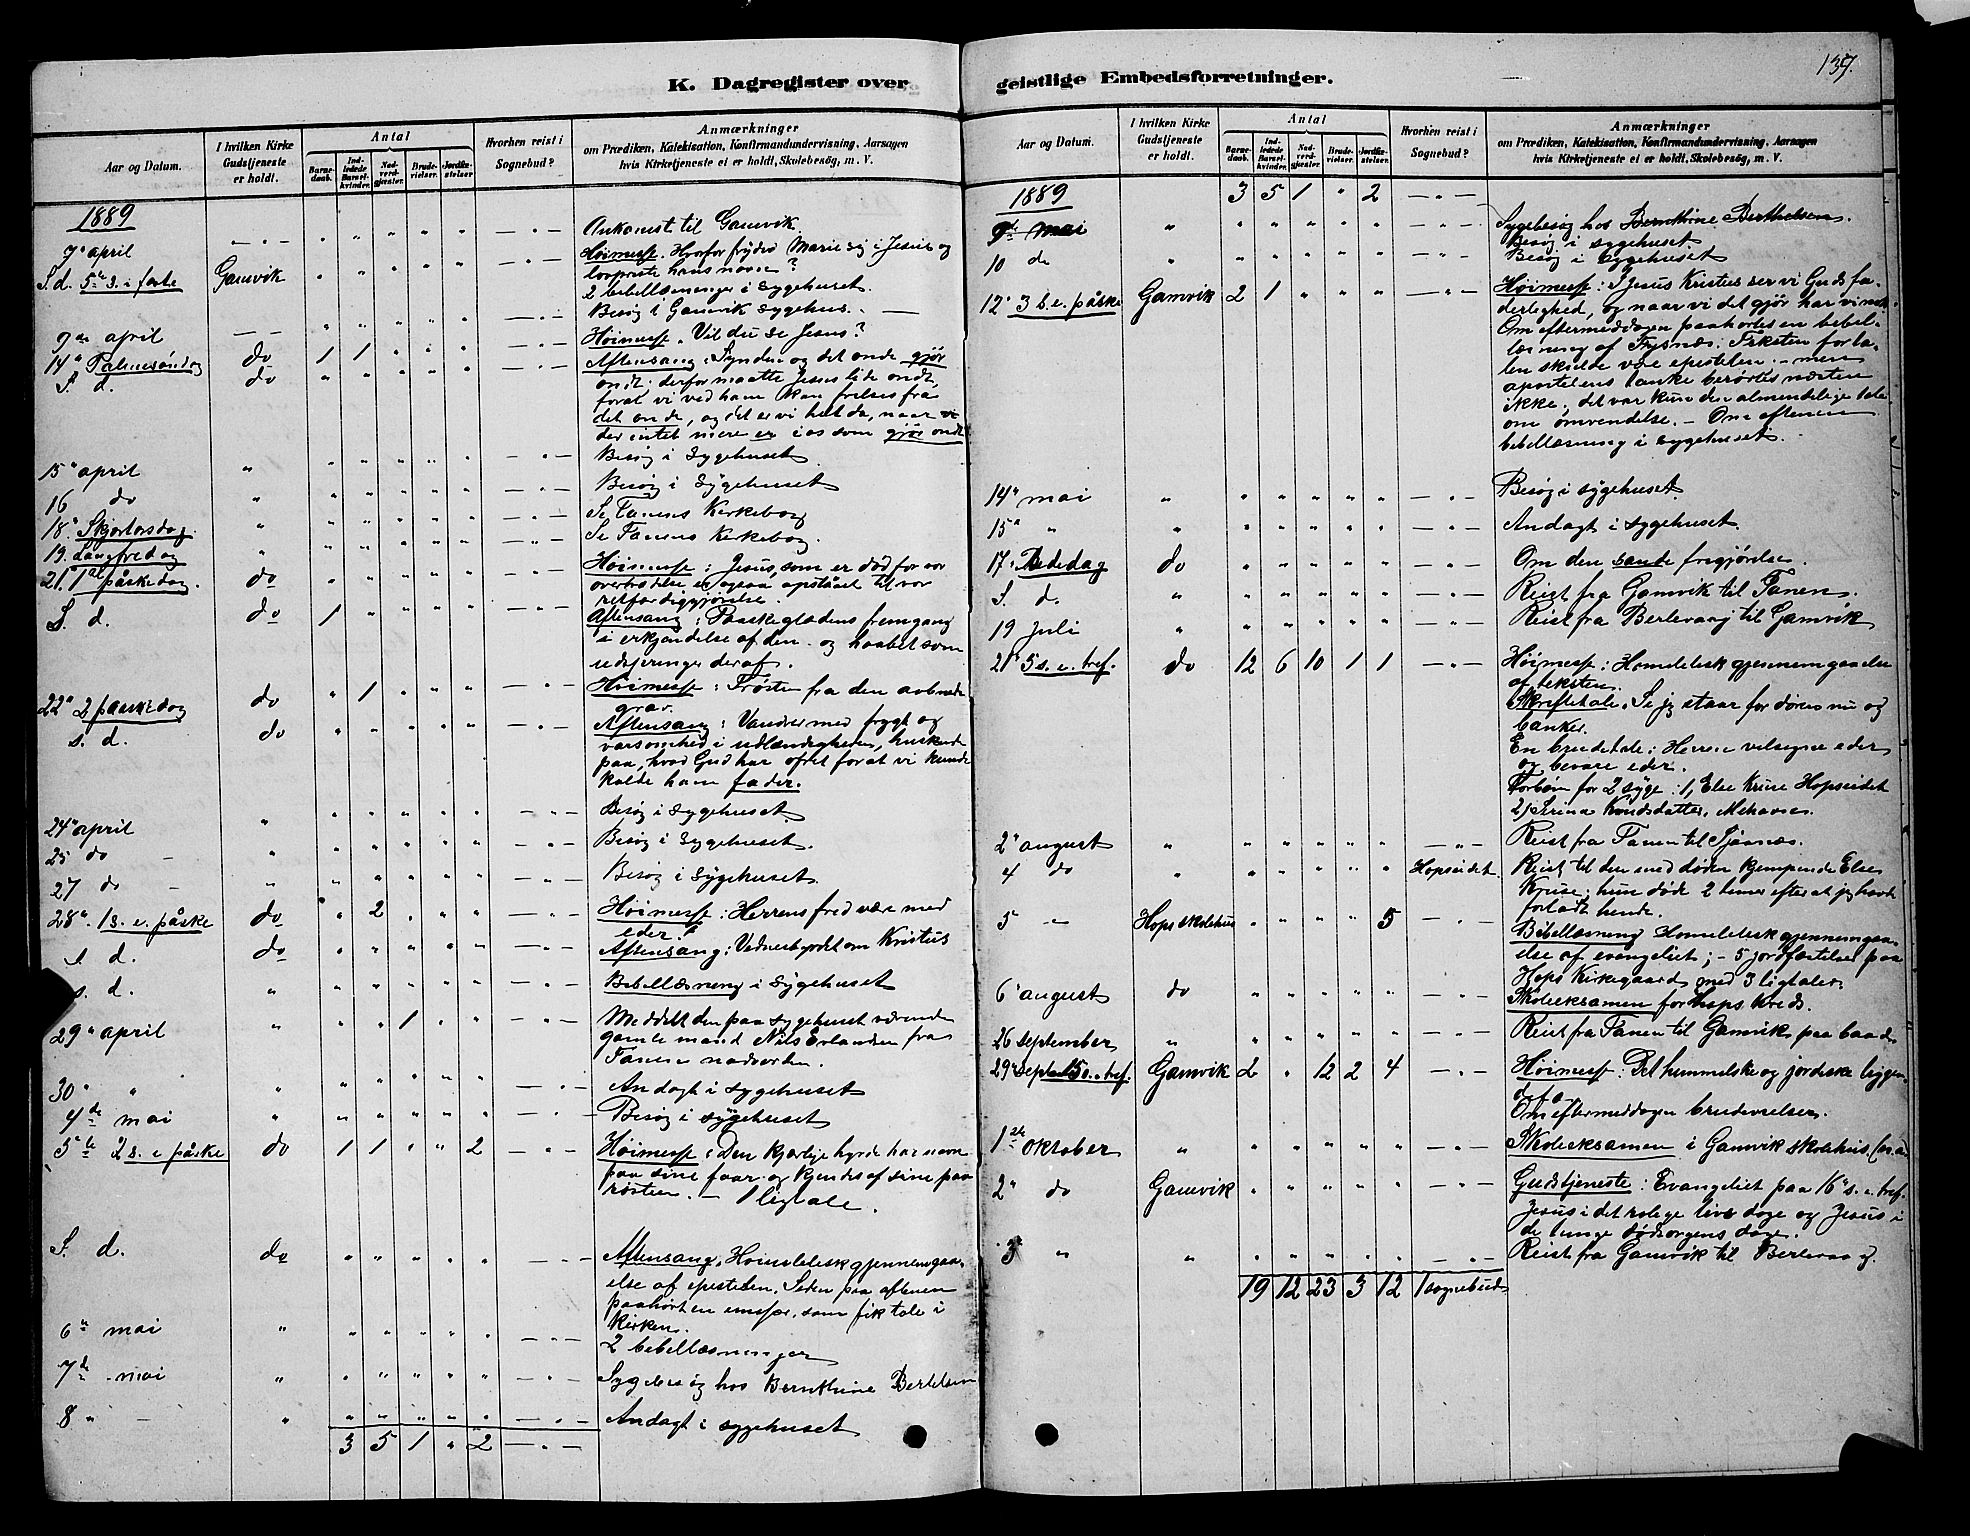 K. Dagregister over
Aar og Datum.
I hvilken Kirke Gudstjeneste er holdt.
Antal
Barnedaab.
Indledede Barselkvinder.
Nadverdgjester.
Brudevielser.
Jordfæstelser
Hvorhen reist i Sognebud?
Anmærkninger
om Prædiken, Katekisation, Konfirmandundervisning, Aarsagen
hvis Kirketjeneste ei er holdt, Skolebesög, m. V.
1889
7de april Ankomst til Gamvik
S. d. 5te s. i faste Gamvik Høimesse. Hvorfor fryder Marie sig i Jesus og
lovpriste hans navn?
2 bibellæsninger i sygehuset.
9de april Besøg i Gamvik sygehus.
14de Palmesøndag do 1 1 Høimesse. Vil du se Jesus?
S. d. do Aftensang: Synden og det onde gjør
ondt; derfor maatte Jesus lide ondt,
forat vi ved ham kan frelses fra
det onde, og det er vi helt da, naar
der intet mere er i os som gjør ondt
15de april Besøg i Sygehuset
16 do Besøg i Sygehuset
18de Skjærtorsdag. Se Tanens Kirkebog
19. Langfredag Se Tanens Kirkebog.
21. 1ste påskedag. do Høimesse: Jesus, som er død for vor
overtrædelse er ogsaa opstået til vor
retfærdiggjørelse.
S. d. do 1 Aftensang: Paaskeglædens fremgang
i erkjendelse af den og haabet som
udspringer deraf.
22de 2 påskedag do 1 Høimesse: Trøsten fra den aabnede
grav.
s. d. do Aftensang: Vandrer med frygt og
varsomhed i udlændigheden, huskende
paa, hvad Gud har ofret forat vi kunde
kalde ham fader.
24de april Besøg i Sygehuset
25 do Besøg i Sygehuset.
27 do Besøg i sygehuset.
28de 1s. e. påske do 2 Høimesse: Herrens fred være med
eder!
s d. do Aftensang: Vidnesbyrdet om Kristus
s. d. Bibellæsning i Sygehuset
29de april 1 Meddelt den paa sygehuset værende
gamle mand Nils Erlandsen fra
Tanen nadverden.
30 Andagt i sygehuset
4de mai Besøg i sygehuset
5te 2 s. e påske do 1 1 2 Høimesse: Den kjærlige hyrde har navn
paa sine faar og kjendes af sine paa
røsten. – 1 ligtale.
S. d. do Aftensang. Homiletisk gjennemgaa-
else af epistelen. Siden paa aftenen
paahørt en emissær, som fik tale i
Kirken.
6te mai 2 bibellæsninger
7de mai Sygebesøg hos Bernthine Bertelsen
8 Andagt i sygehuset
3 5 1 2
geistlige Embedsforretninger.
139.
Aar og Datum.
I hvilken Kirke Gudstjeneste er holdt.
Antal
Barnedaab.
Indledede Barselkvinder.
Nadverdgjester.
Brudevielser.
Jordfæstelser.
Hvorhen reist i Sognebud?
Anmærkninger
om Prædiken, Katekisation, Konfirmandundervisning, Aarsagen
hvis Kirketjeneste ei er holdt, Skolebesög, m. V.
1889 3 5 1 2
9de mai Sygebesøg hos Bernthine Berthelsen.
Besøg i sygehuset.
10 do Besøg i sygehuset
12te 3 s. e. påske Gamvik 2 1 Høimesse: I Jesus Kristus ser vi Guds fa-
derlighed, og naar vi det gjør har vi nok.
Om eftermiddagen paahørtes en bibel-
læsning af Frysnæs. Teksten for ta-
len skulde være epistelen – men
apostelens tanke berørtes næsten
ikke; det var kun den almindelige tale
om omvendelse. – Om aftenen
bibellæsning i sygehuset.
14de mai Besøg i sygehuset
15de Andagt i sygehuset.
17. Bededag do Om den sande frigjørelse.
S. d. Reist fra Gamvik til Tanen.
19 Juli Reist fra Berlevaag til Gamvik
21de 5 s. e. tref. do 12 6 10 1 1 Høimesse: Homiletisk gjennemgaaelse
af teksten.
Skriftetale. Se jeg staar for døren nu og
banker.
En brudetale: Herren velsigne eder
og bevare eder.
Forbøn for 2 syge: 1, Else Krine Hopseidet
2) Serina Knudsdatter, Mehavn.
2de august Reist fra Tanen til Sjaanæs.
4 do Hopseidet Reist til den med døden kjempende Else
Krine; hun døde 2 timer efter at jeg havde
forladt hende.
5 Hops skolehus 5 Bibellæsning Homiletisk gjennemgaa-
else af evangeliet; – 5 jordfæstelser paa
Hops Kirkegaard med 3 ligtaler.
6te august do Skoleeksamen for Hops kreds.
26 september Reist fra Tanen til Gamvik paa baad.
29de septemb 15 s. e. tref. Gamvik 2 12 2 4 Høimesse: Det himmelske og jordiske ligger
Om eftermiddagen brudevielser.
1ste oktober Skoleeksamen i Gamvik skolehus
2de do Gamvik Gudstjeneste: Evangeliet paa 16de s. e. tref.
Jesus i det rolige livs dage og Jesus i
de tunge dødssorgens dage.
3de Reist fra Gamvik til Berlevaag.
19 12 23 3 12 1 sognebud